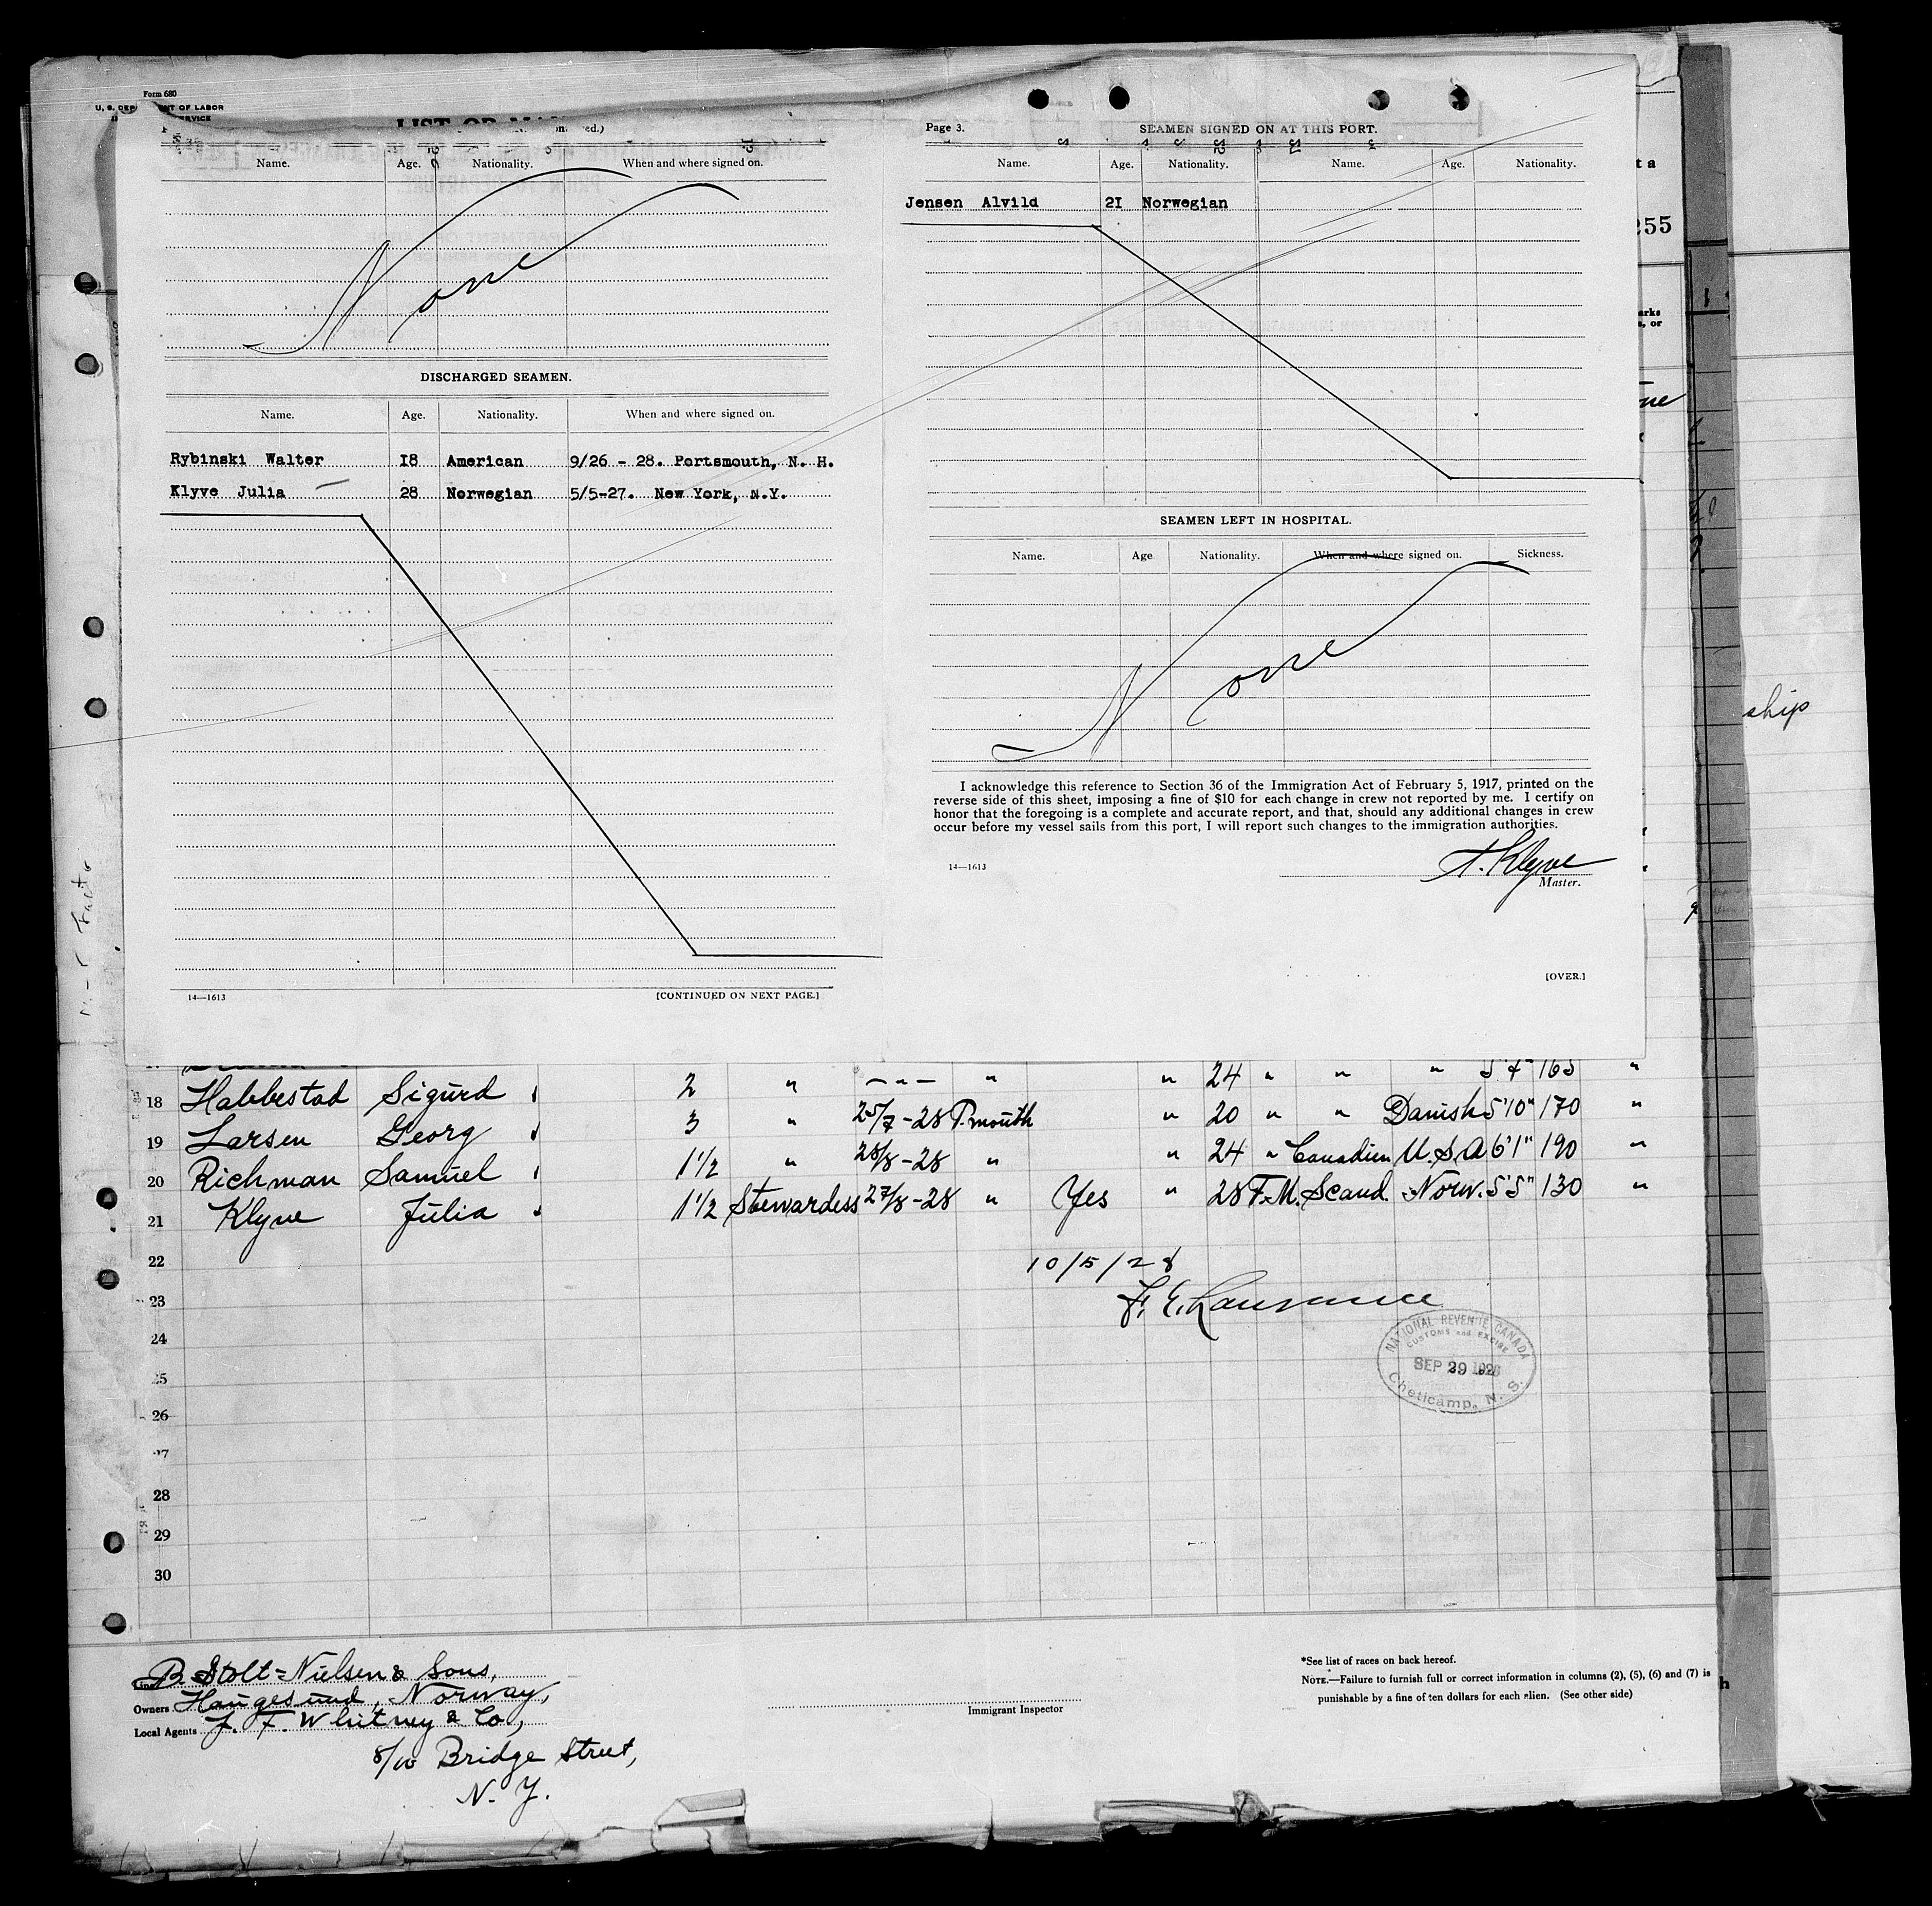 Form 680
U. S. DEP NT OF LABOR
ERVICE
LIST OR MA
Name. Age. Nationality. When and where signed on.
None
DISCHARGED SEAMEN.
Name. Age. Nationality. When and where signed on.
Rybinski Walter I8 American 9/26 - 28. Portsmouth, N. H.
Klyve Julia 28 Norwegian 5/5-27. New York, N.Y.
14—1613 [CONTINUED ON NEXT PAGE.]
Page 3. SEAMEN SIGNED ON AT THIS PORT.
Name. Age. Nationality. Name. Age. Nationality.
Jensen Alvild 2I Norwegian
SEAMEN LEFT IN HOSPITAL.
Name. Age Nationality. When and where signed on. Sickness.
None
I acknowledge this reference to Section 36 of the Immigration Act of February 5, 1917, printed on the
reverse side of this sheet, imposing a fine of $10 for each change in crew not reported by me. I certify on
honor that the foregoing is a complete and accurate report, and that, should any additional changes in crew
occur before my vessel sails from this port, I will report such changes to the immigration authorities.
A. Klyve
14—1613 Master.
[OVER.]
t a
255
arks
s, or
ne
ship
18 Habbestad Sigurd 2 " -"- " " 24 " " " 5'7" 165 "
19 Larsen Georg 3 " 25/7-28 P.mouth " 20 " " Danish 5'10" 170 "
20 Richman Samuel 1 1/2 " 28/8-28 " " 24 " Canadien U.S.A 6'1" 190 "
21 Klyve Julia 1 1/2 Stewardess 27/8-28 " Yes " 28 F. M. Scand. Norw. 5'5" 130 "
22
10/5/28
23
24
NATIONAL REVENUE CANADA
CUSTOMS and EXCISE
SEP 29 1928
Cheticamp, N. S.
25
26
27
28
29
30
B. Stolt-Nielsen & Sons,
Owners Haugesund, Norway,
Local Agents J. F. Whitney & Co,
8/10 Bridge Street,
N. Y.
Immigrant Inspector
*See list of races on back hereof.
NOTE.—Failure to furnish full or correct information in columns (2), (5), (6) and (7) is
punishable by a fine of ten dollars for each alien. (See other side)